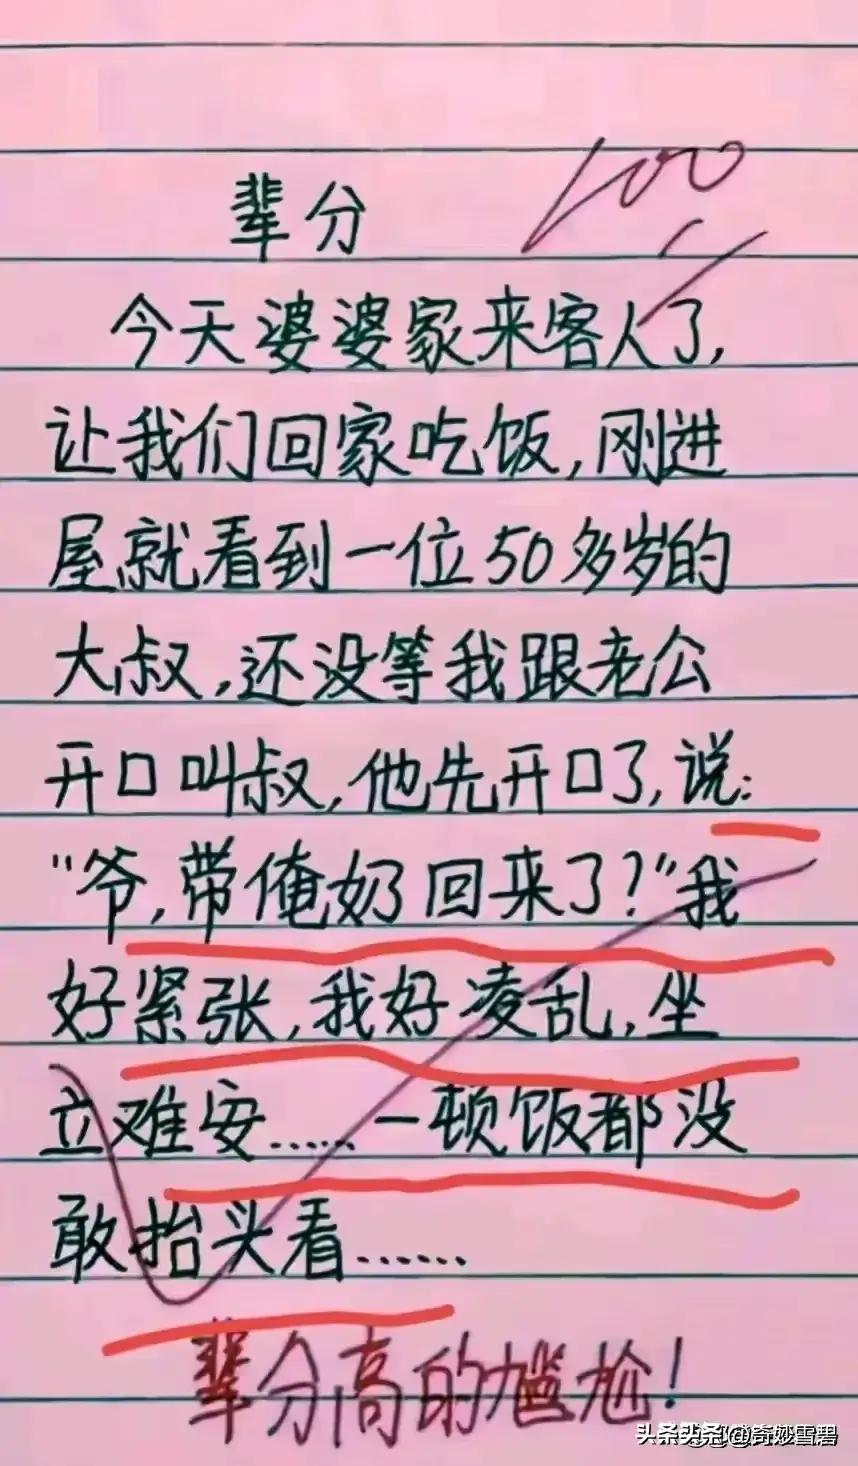 100
辈分
今天婆婆家来客人了,
让我们回家吃饭,刚进
屋就看到一位50多岁的
大叔,还没等我跟老公
开口叫叔,他先开口了,说:
"爷,带俺奶回来了?"我
好紧张,我好凌乱,坐
立难安......一顿饭都没
敢抬头看......
辈分高的尴尬!
头条 @奇妙雪碧